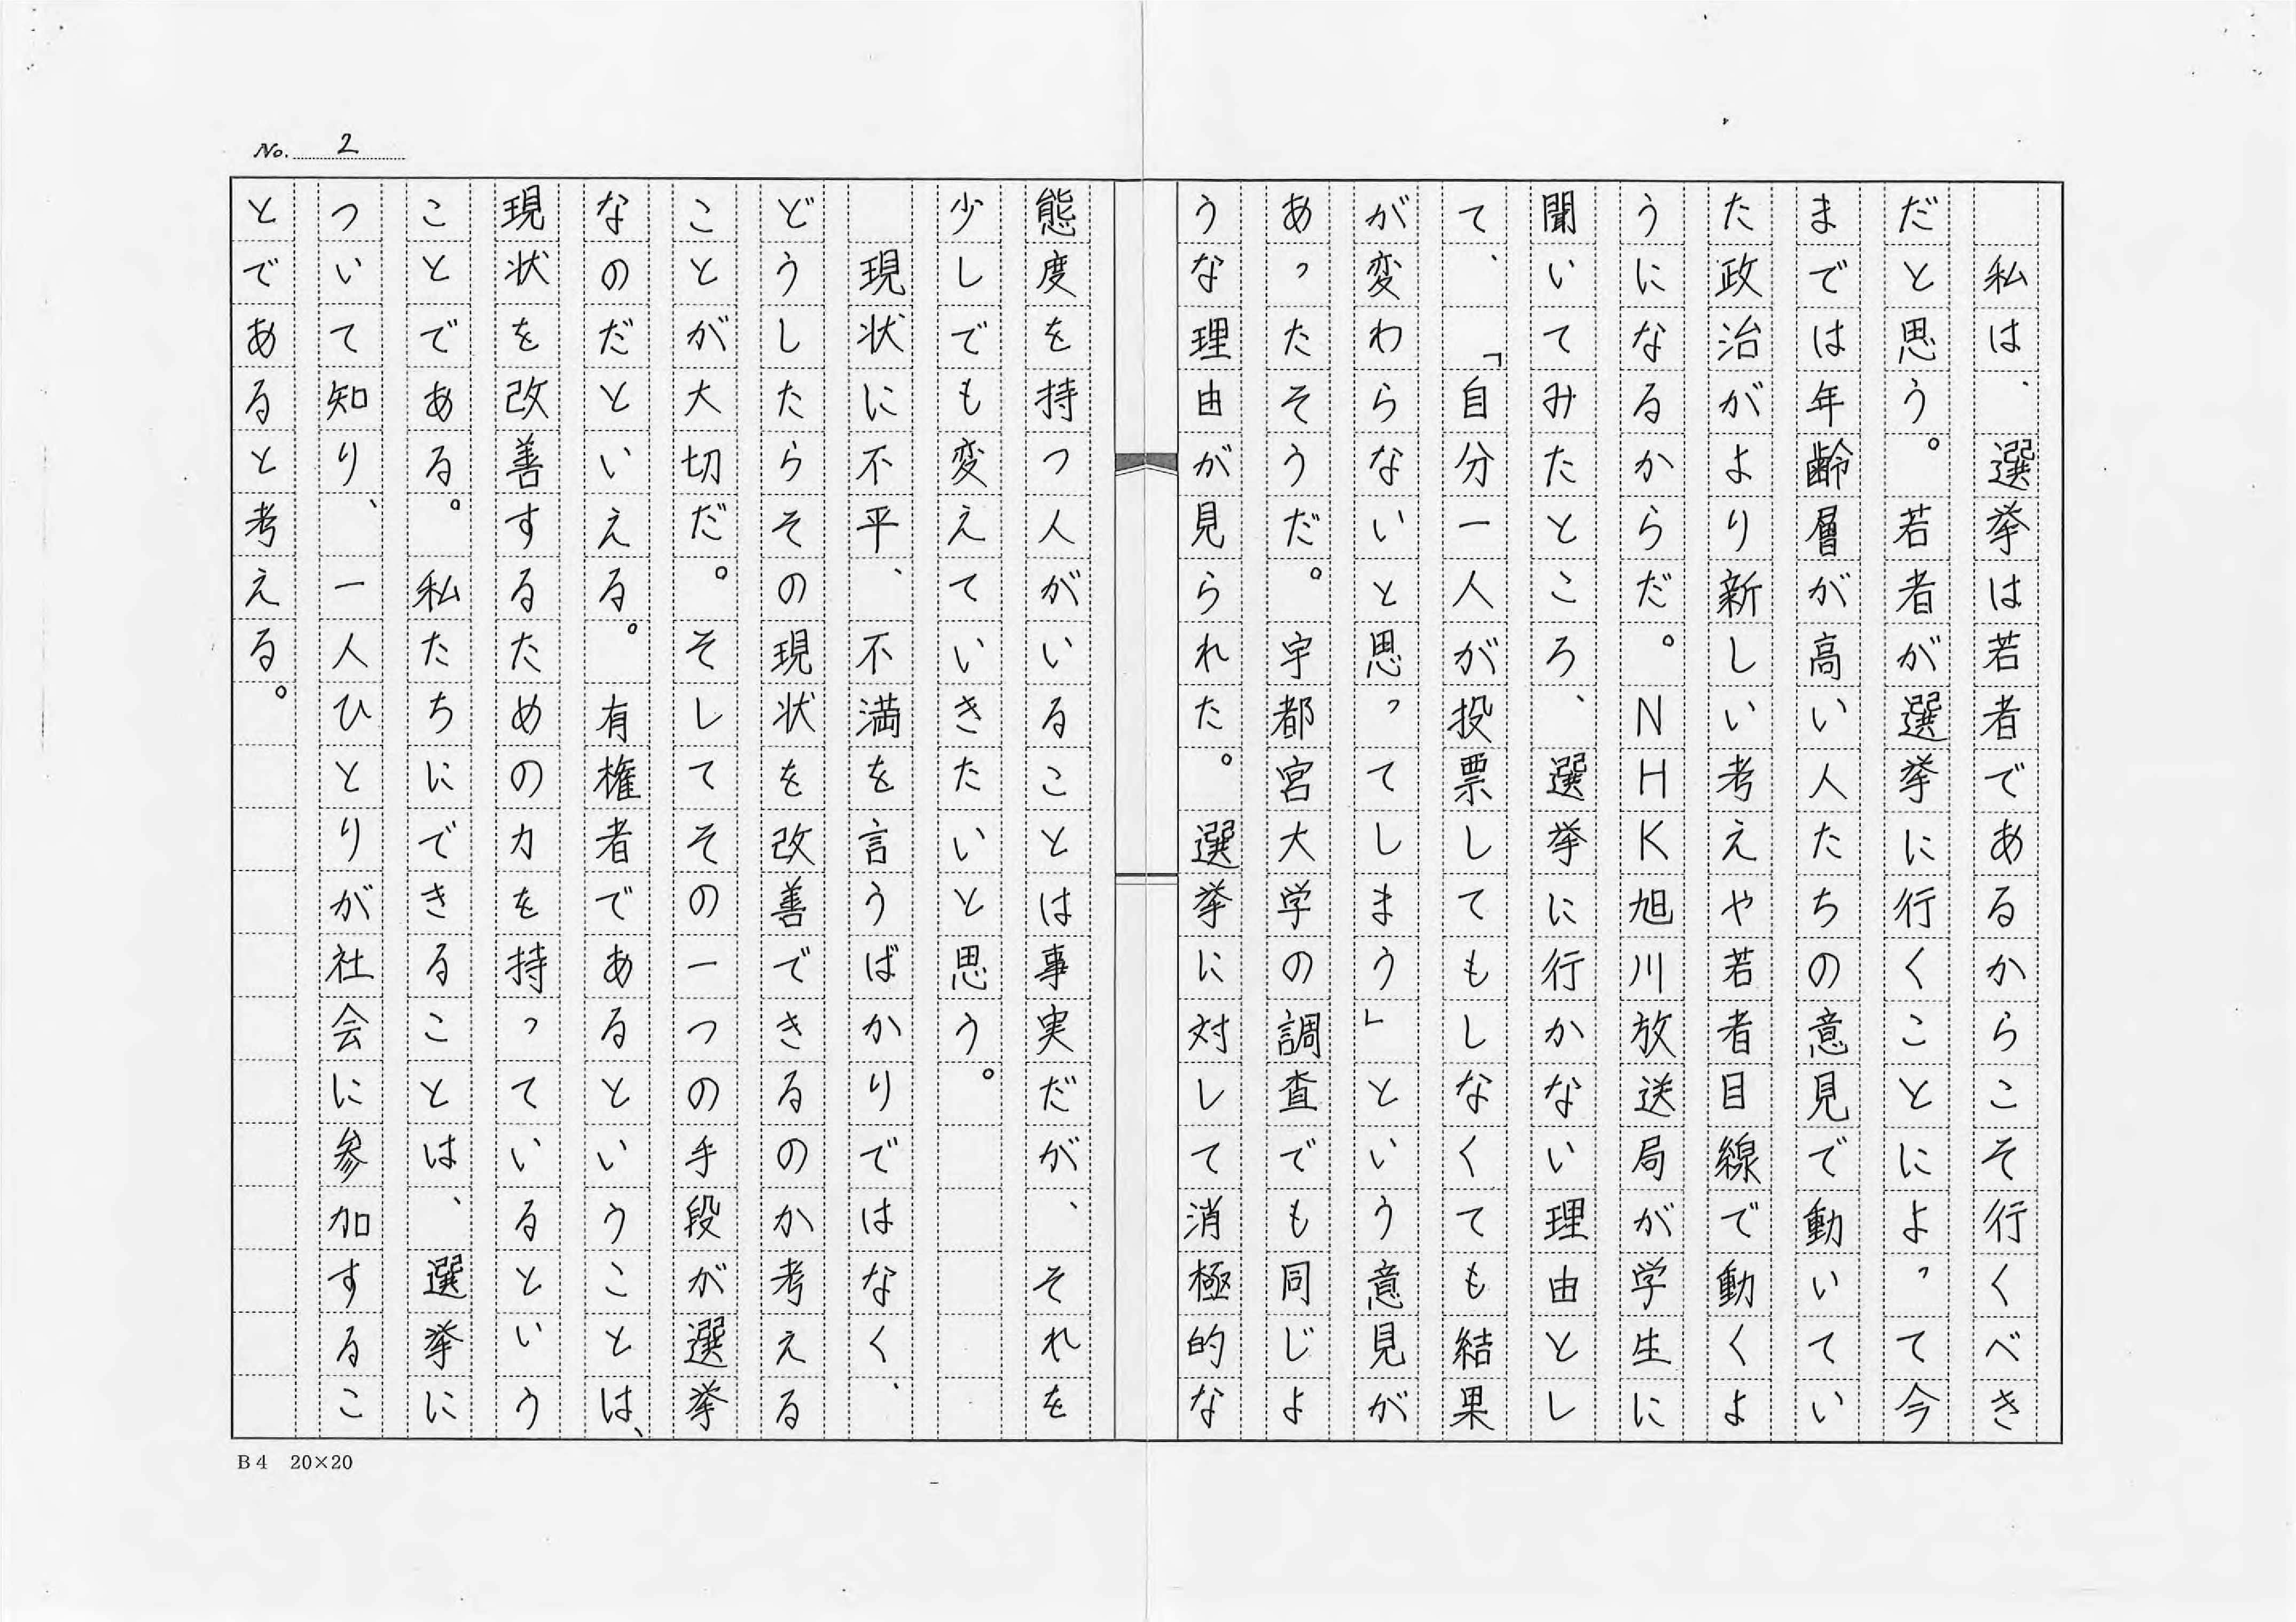 No. 2
　私は、選挙は若者であるからこそ行くべき
だと思う。若者が選挙に行くことによって今
までは年齢層が高い人たちの意見で動いてい
た政治がより新しい考えや若者目線で動くよ
うになるからだ。NHK旭川放送局が学生に
聞いてみたところ、選挙に行かない理由とし
て、「自分一人が投票してもしなくても結果
が変わらないと思ってしまう」という意見が
あったそうだ。宇都宮大学の調査でも同じよ
うな理由が見られた。選挙に対して消極的な
態度を持つ人がいることは事実だが、それを
少しでも変えていきたいと思う。
　現状に不平、不満を言うばかりではなく、
どうしたらその現状を改善できるのか考える
ことが大切だ。そしてその一つの手段が選挙
なのだといえる。有権者であるということは、
現状を改善するための力を持っているという
ことである。私たちにできることは、選挙に
ついて知り、一人ひとりが社会に参加するこ
とであると考える。
B4 20×20